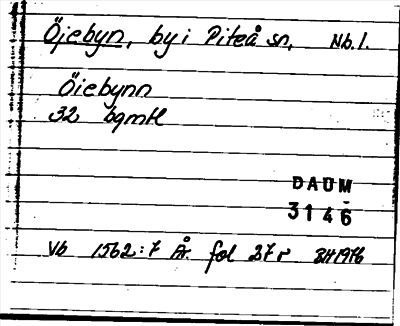 Öjebyn, by i Piteå sn, Nb. l.
Öiebynn
32 bgmtl
DAUM
3146
Vb 1562:7 År. fol 27 r BH 1976